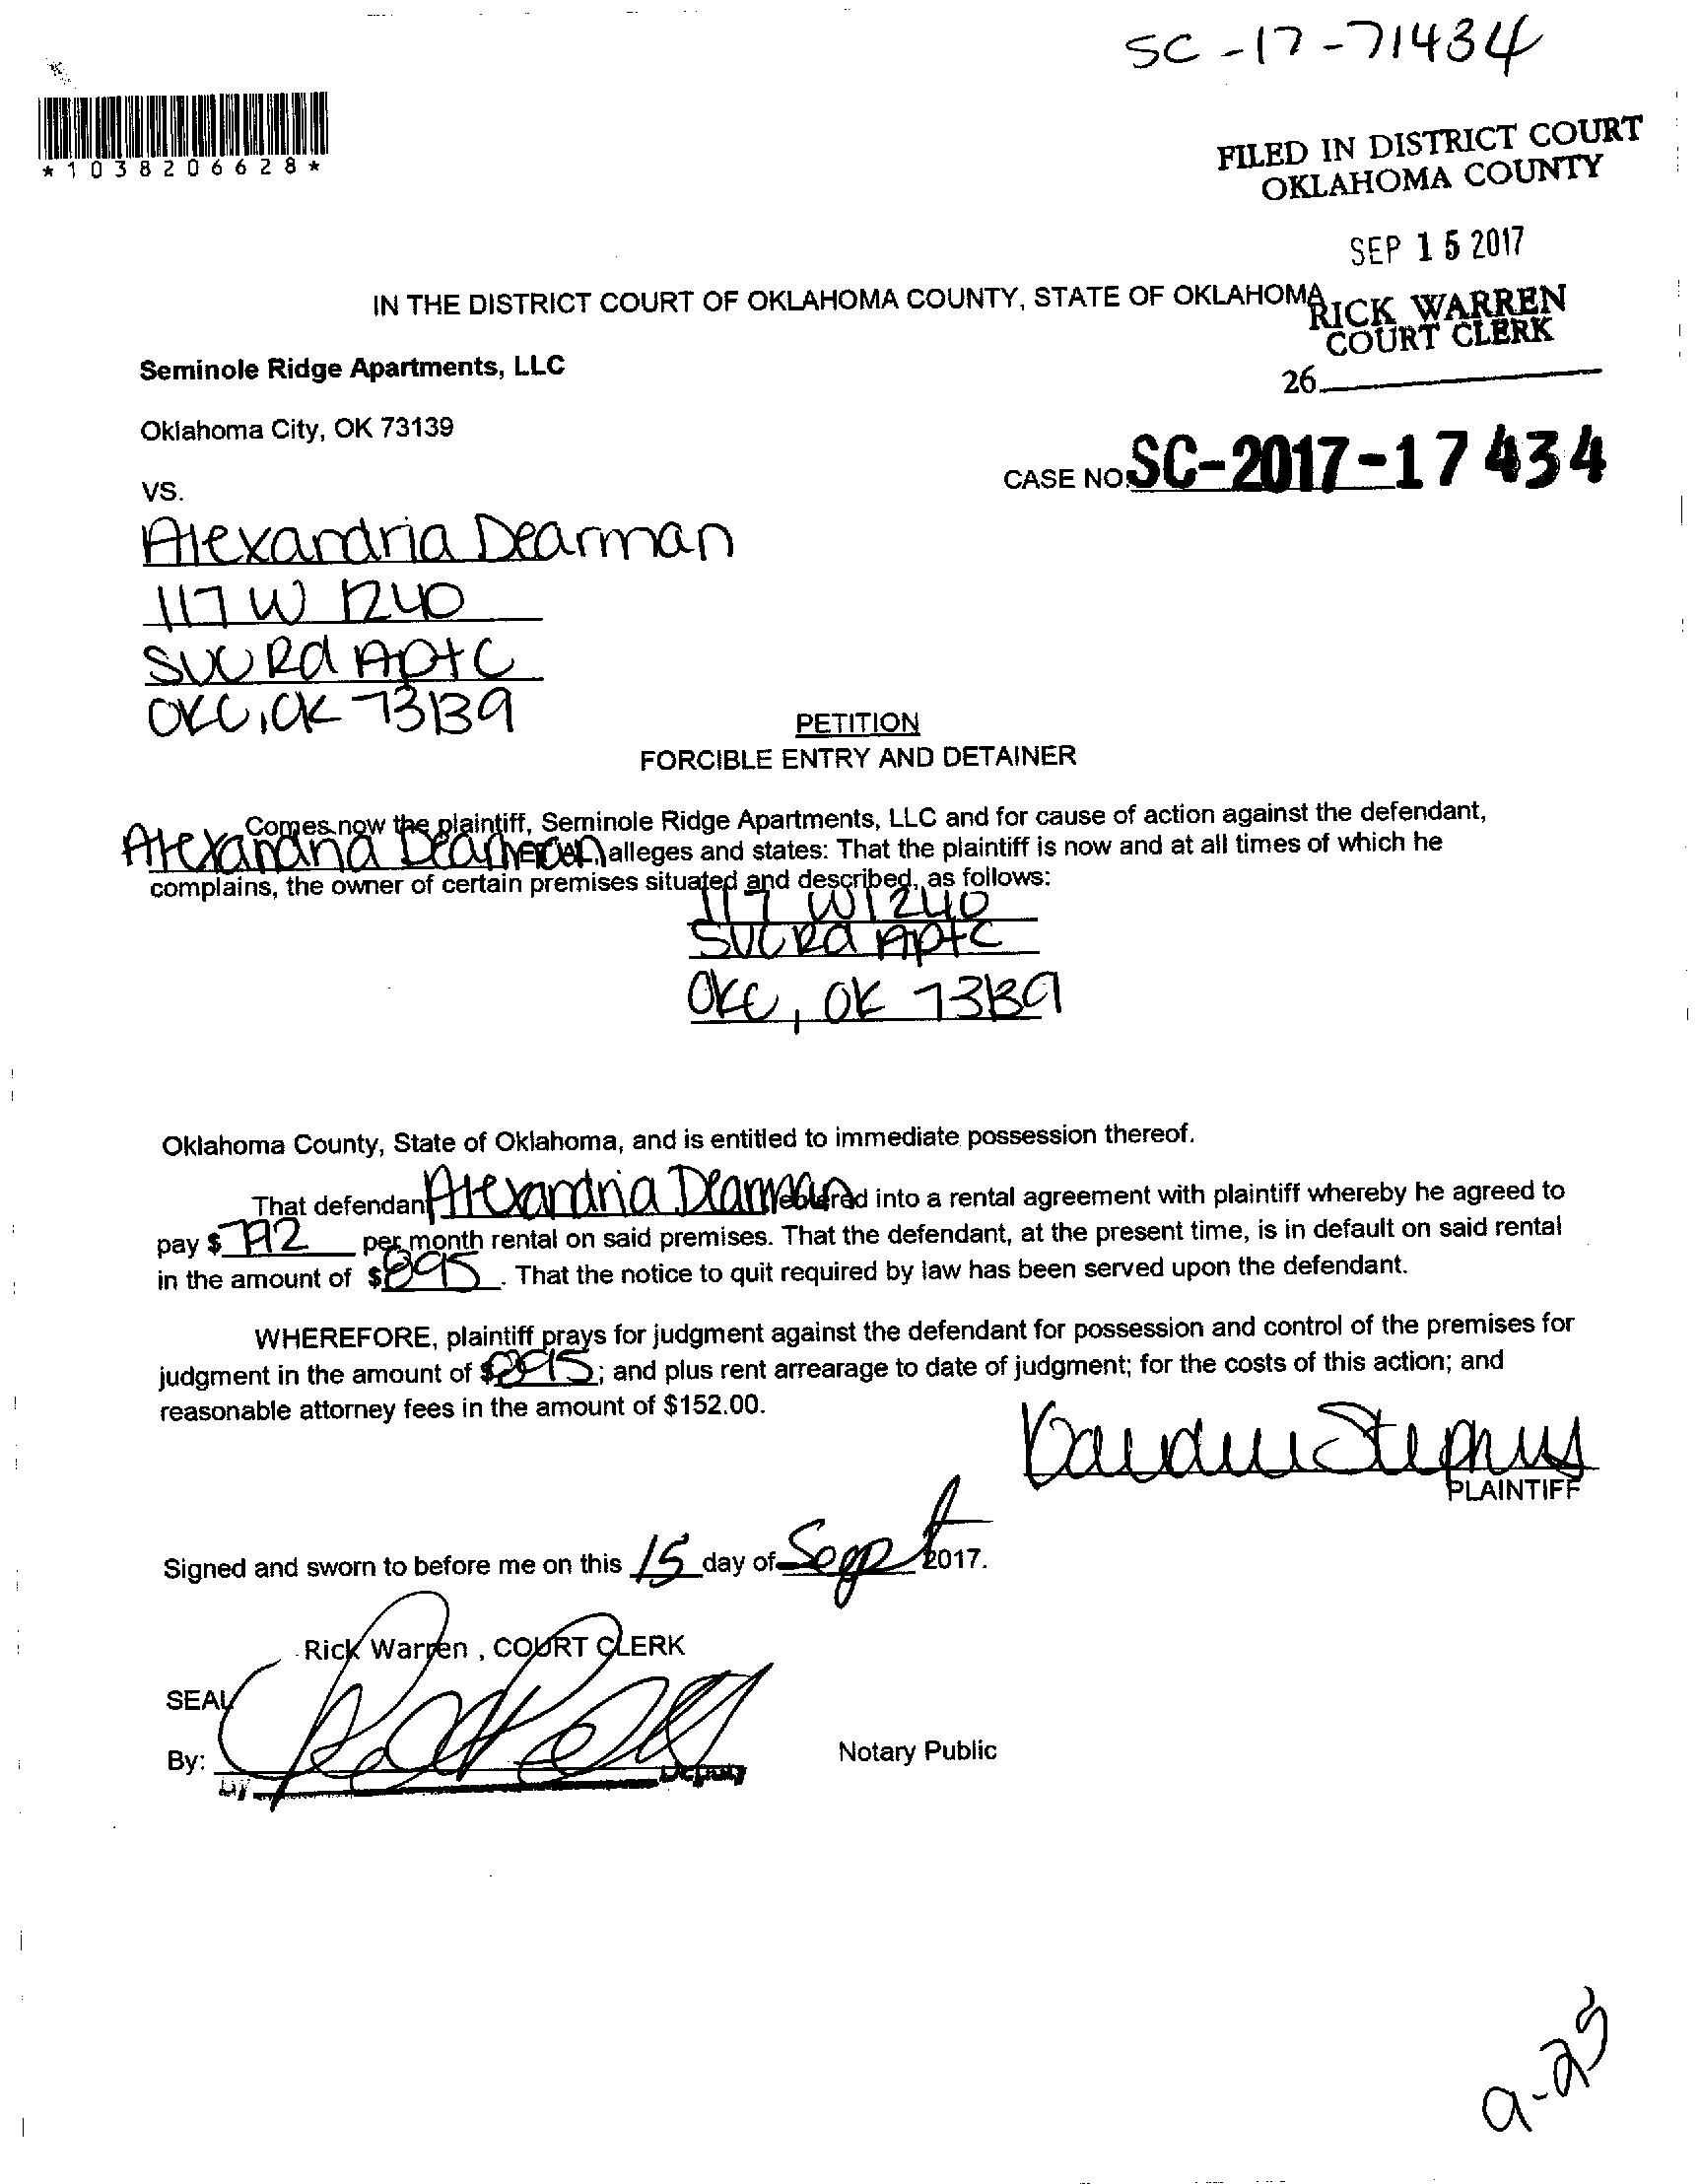 SC-17-71434
*1038206628*
FILED IN DISTRICT COURT
OKLAHOMA COUNTY
SEP 15 2017
IN THE DISTRICT COURT OF OKLAHOMA COUNTY, STATE OF OKLAHOMA
RICK WARREN
COURT CLERK
26
Seminole Ridge Apartments, LLC
Oklahoma City, OK 73139
CASE NO. SC-2017-17434
VS.
Alexandria Dearman
117 W I240
SVC Rd Apt C
OKC, OK 73139
PETITION
FORCIBLE ENTRY AND DETAINER
Comes now the plaintiff, Seminole Ridge Apartments, LLC and for cause of action against the defendant,
Alexandria Dearman, alleges and states: That the plaintiff is now and at all times of which he
complains, the owner of certain premises situated and described, as follows:
117 W I240
SVC Rd Apt C
OKC, OK 73139
Oklahoma County, State of Oklahoma, and is entitled to immediate possession thereof.
That defendant Alexandria Dearman entered into a rental agreement with plaintiff whereby he agreed to
pay $ 792 per month rental on said premises. That the defendant, at the present time, is in default on said rental
in the amount of $895. That the notice to quit required by law has been served upon the defendant.
WHEREFORE, plaintiff prays for judgment against the defendant for possession and control of the premises for
judgment in the amount of $895; and plus rent arrearage to date of judgment; for the costs of this action; and
reasonable attorney fees in the amount of $152.00.
PLAINTIFF
Signed and sworn to before me on this 15 day of Sept 2017.
Rick Warren , COURT CLERK
SEAL
By:
Notary Public
By Deputy
9-25